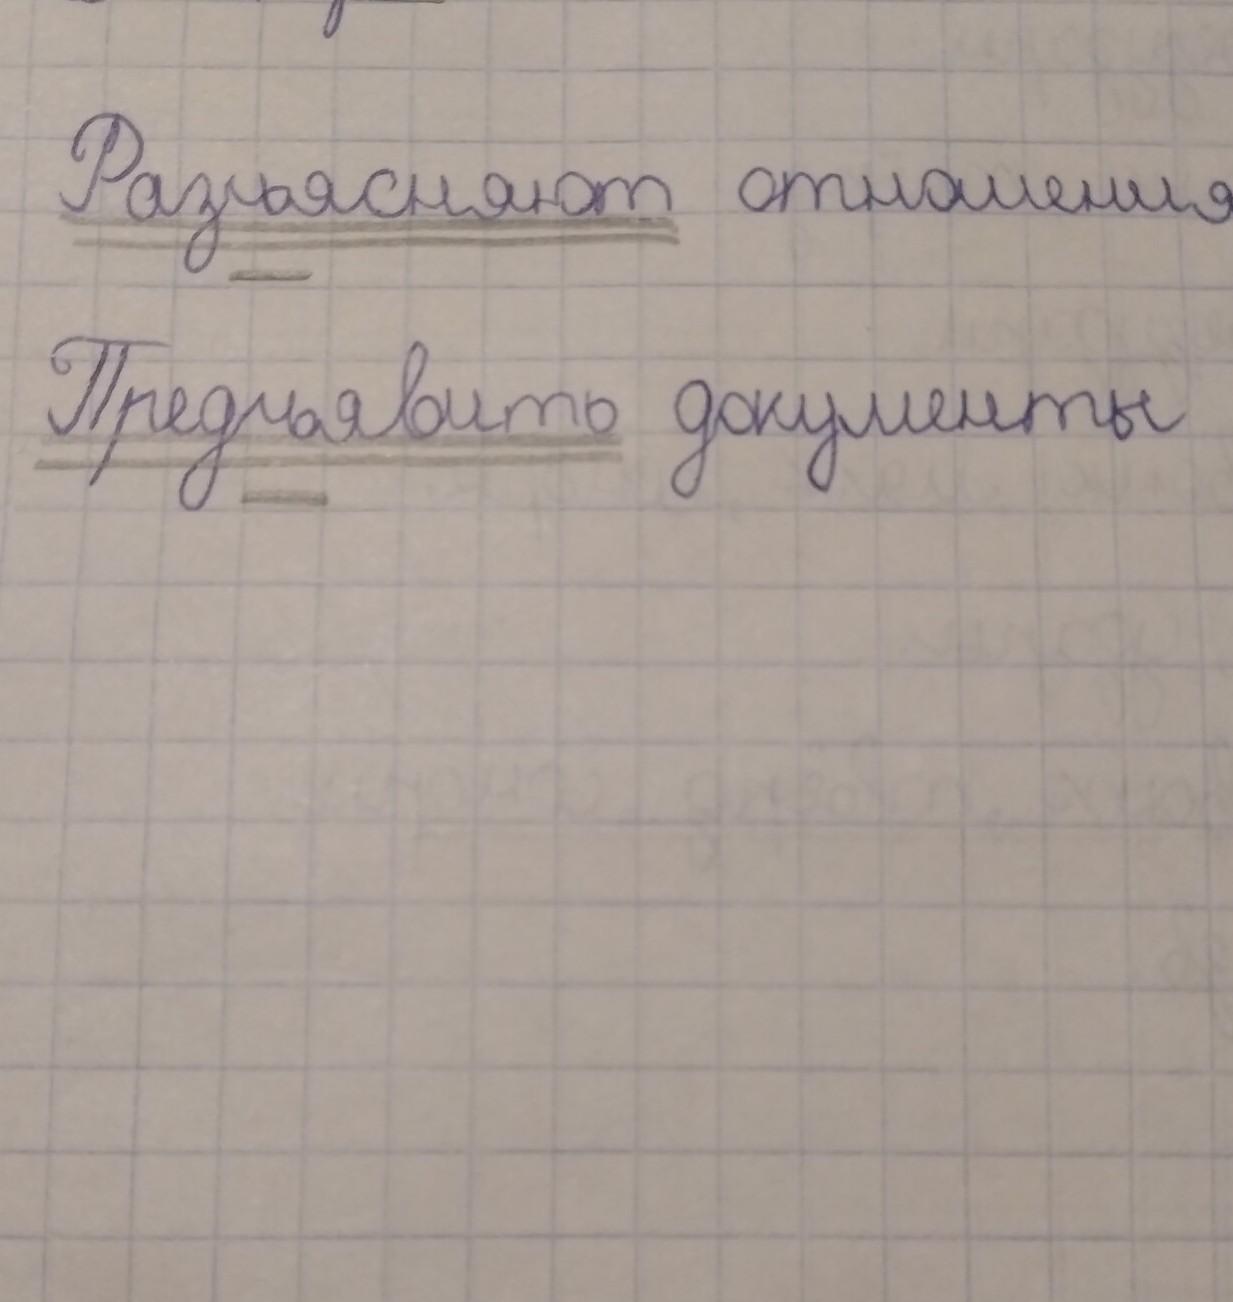 Разъясняют отношения
Предъявить документы